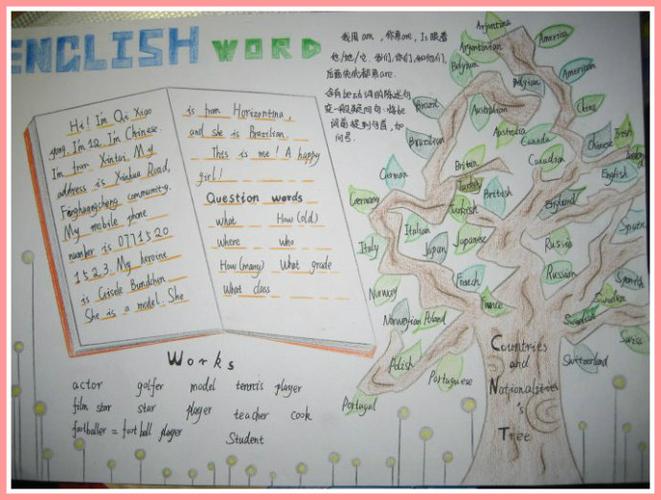 ENGLISH WORD
我用am，你用are，Is跟着
他/她/它。我们,你们,和他们,
后面统统都用are.
含有be动词的陈述句
变一般疑问句:将be
词前提到句首,加
问号.
Hi! I'm Qi Xiao
yang. I'm 12. I'm Chinese.
I'm from Xintai. My
address is Xinhua Road,
Fenghuangcheng community.
My mobile phone
number is 0771520
1523. My heroine
is Gisele Bundchen
She is a model. She
is from Horizontina,
and she is Brazilian.
This is me! A happy
girl!
Question words
what How (old)
Where who
How(many) What grade
What class
Works
actor golfer model tennis player
film star star player teacher cook
footballer = foot ball player Student
Argentina
Argentinian
America
American
Belgium
Belgian
Brazil
Brazilian
Australian
Australia
China
Chinese
Canada
Canadian
German
Germany
Britain
British
Turkey
Turkish
English
England
Italian
Italy
Japan
Japanese
Russia
Russian
Spain
Spanish
French
France
Norway
Norwegian
Poland
Polish
Sweden
Swedish
Swiss
Switzerland
Portuguese
Portugal
Countries
and
Nationalities
's
Tree